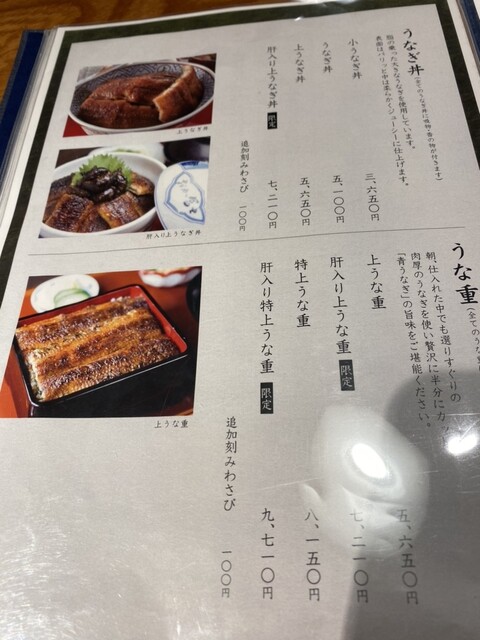 うなぎ丼(全てのうなぎ丼に吸物・香の物が付きます)
脂の乗った大きなうなぎを使用しています。
表面はパリッと中は柔らかくジューシーに仕上げます。
小うなぎ丼 三、六五〇円
うなぎ丼 五、一〇〇円
上うなぎ丼 五、六五〇円
肝入り上うなぎ丼 限定 七、二一〇円
追加刻みわさび 一〇〇円
上うなぎ丼
肝入り上うなぎ丼
うな重(全てのうな
朝、仕入れた中でも選りすぐりの
肉厚のうなぎを使い贅沢に半分にカッ
「青うなぎ」の旨味をご堪能ください。
上うな重 五、六五〇円
肝入り上うな重 限定 七、二一〇円
特上うな重 八、一五〇円
肝入り特上うな重 限定 九、七一〇円
追加刻みわさび 一〇〇円
上うな重